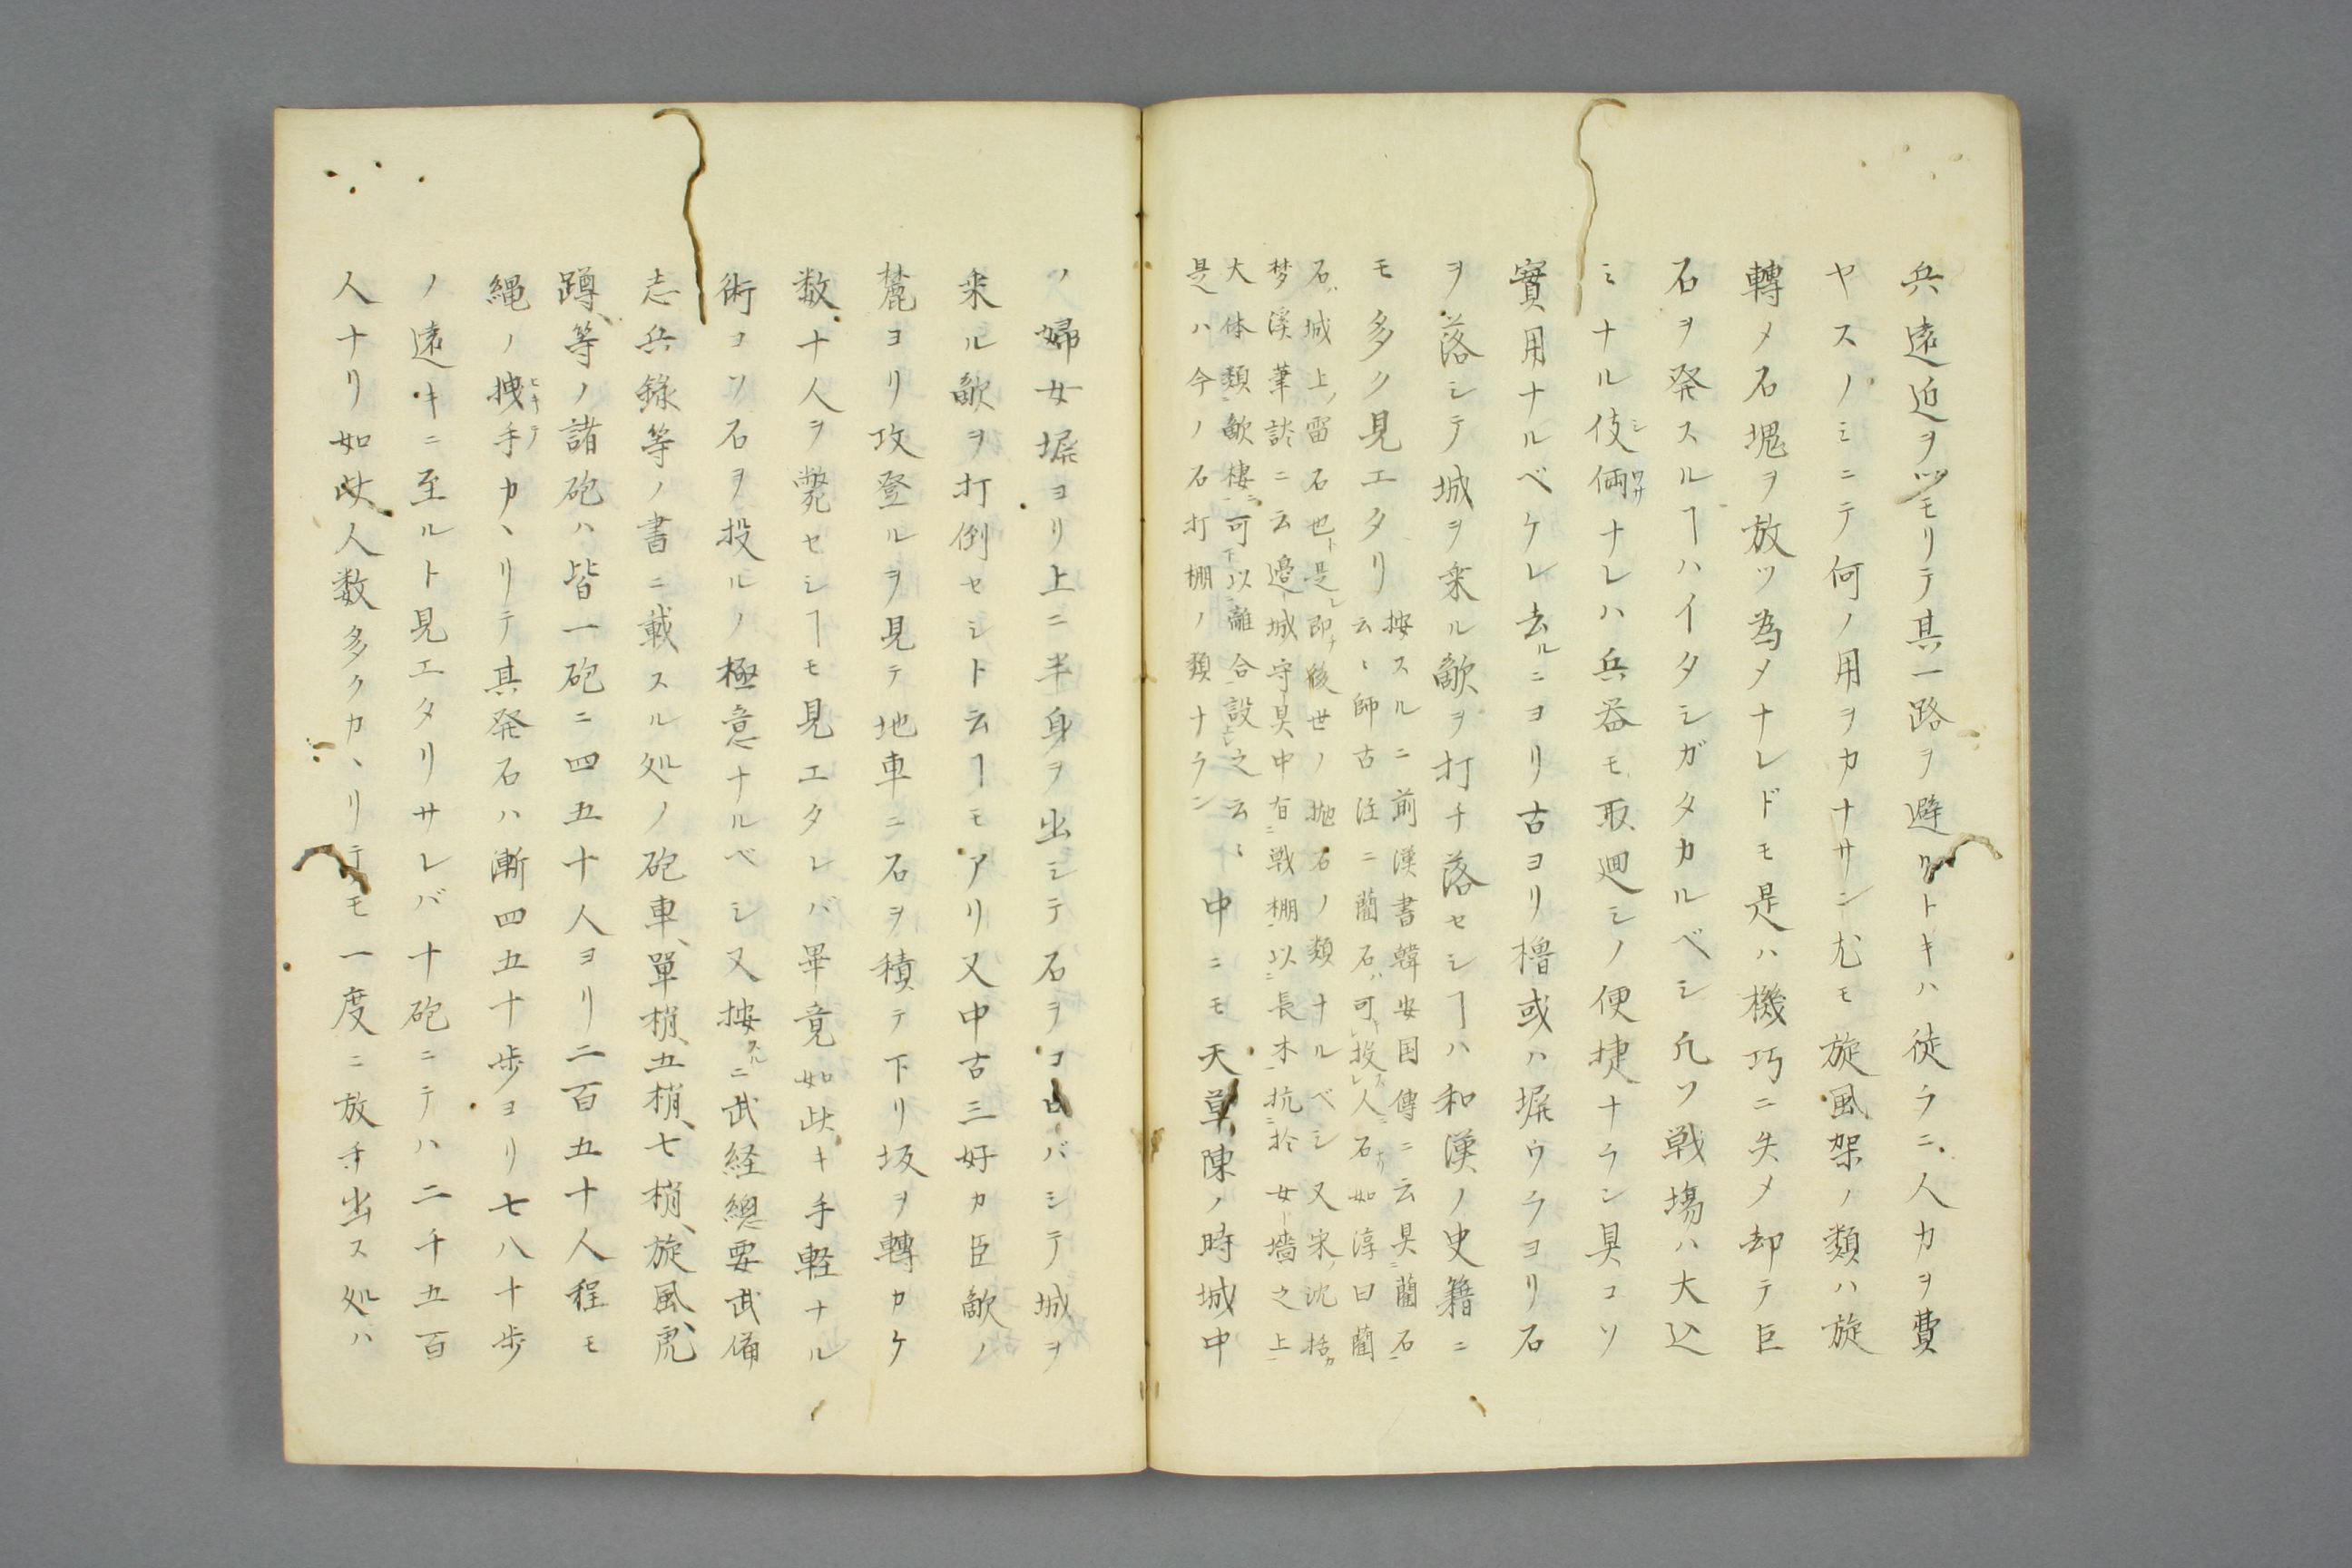 兵遠迫ヲツモリテ其一路ヲ避ルトキハ徒ラニ人力ヲ費
ヤスノミニテ何ノ用ヲカナサン尤モ旋風架ノ類ハ旋
轉メ石塊ヲ放ツ為メナレドモ是ハ機巧ニ失メ却テ巨
石ヲ発スルヿハイタシガタカルベシ凡ソ戦塲ハ大込
ミナル伎倆シワサナレハ兵器モ取廻シノ便捷ナラン具コソ
實用ナルベケレ去ルニヨリ古ヨリ櫓或ハ塀ウラヨリ石
ヲ落シテ城ヲ来ル敵ヲ打チ落セシヿハ和漢ノ史籍ニ
モ多ク見エタリ
按スルニ前漢書韓安国傳ニ云具藺石
云〻師古注ニ藺石ハ可投人石ナリ如淳曰藺
石ハ城上ノ雷石也ト是レ即チ後世ノ抛石ノ類ナルベシ又宋ノ沈括カ
梦溪筆談ニ云邉城守具中有戦棚以長木抗於女墻之上
大体類敵樓可以離合設之云〻
是ハ今ノ石打棚ノ類ナラン
中ニモ天草陳ノ時城中
ノ婦女塀ヨリ上ニ半身ヲ出シテ石ヲコロバシテ城ヲ
来ル敵ヲ打倒セシト云ヿモアリ又中古三好カ臣敵ノ
麓ヨリ攻登ルヲ見テ地車ニ石ヲ積テ下リ坂ヲ轉カケ
数十人ヲ斃セシヿモ見エタレバ畢竟如此キ手軽ナル
術コソ石ヲ投ルノ極意ナルベシ又按スルニ武経總要武備
志兵錄等ノ書ニ載スル処ノ砲車、單梢、五梢、七梢、旋風、虎
蹲、等ノ諸砲ハ皆一砲ニ四五十人ヨリ二百五十人程モ
縄ノ拽手ヒキテカヽリテ其発石ハ漸四五十歩ヨリ七八十歩
ノ遠キニ至ルト見エタリサレバ十砲ニテハ二千五百
人ナリ如此人数多クカヽリテモ一度ニ放チ出ス処ハ